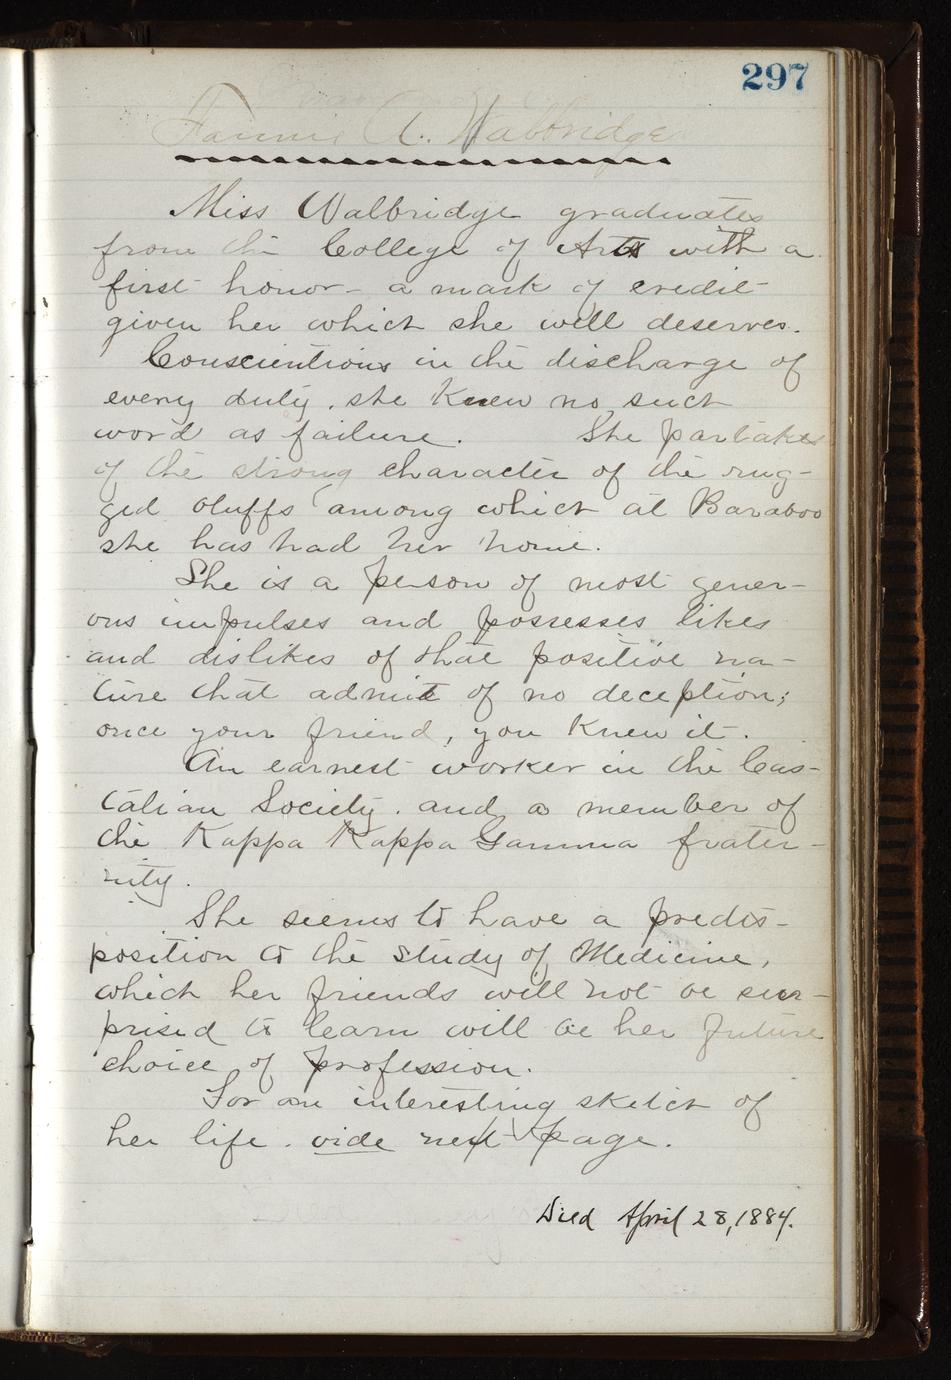 297
Fannie A. Walbridge
Miss Walbridge graduates
from the College of Arts with a
first honor - a mark of credit
given her which she well deserves.
Conscientious in the discharge of
every duty, she knew no such
word as failure. She partakes
of the strong character of the rug-
ged bluffs among which at Baraboo
she has had her home.
She is a person of most gener-
ous impulses and possesses likes
and dislikes of that positive na-
ture that admit of no deception;
once your friend, you knew it.
An earnest worker in the Cas-
talian Society. and a member of
the Kappa Kappa Gamma frater-
nity.
She seems to have a predis-
position to the study of Medicine,
which her friends will not be sur-
prised to learn will be her future
choice of profession.
For an interesting sketch of
her life. vide next page.
Died April 28, 1884.